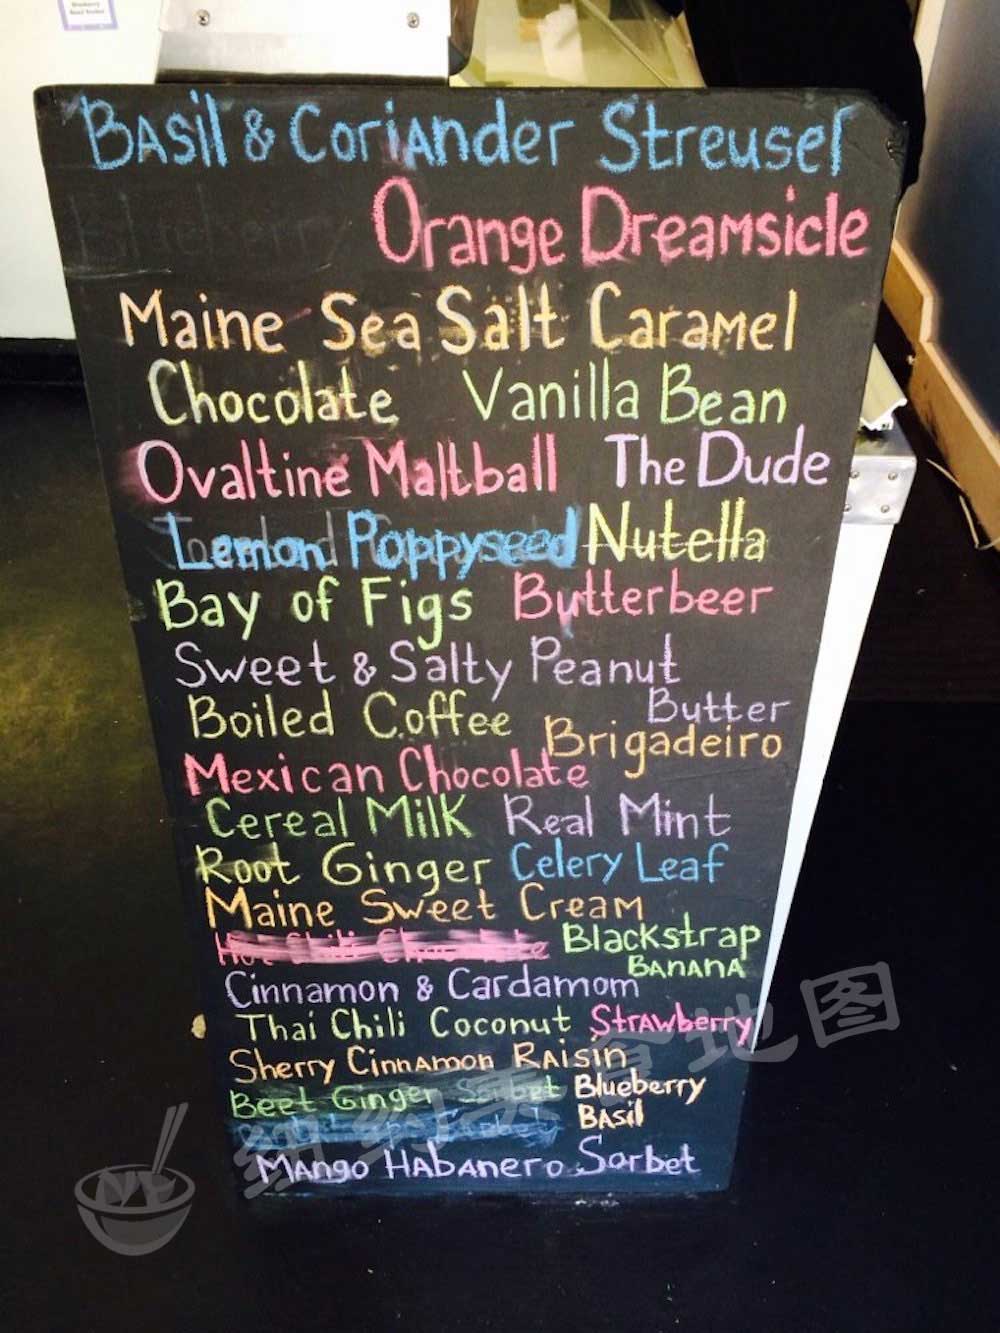 Basil & Coriander Streusel
Orange Dreamsicle
Maine Sea Salt Caramel
Chocolate Vanilla Bean
Ovaltine Maltball The Dude
Lemon Poppyseed Nutella
Bay of Figs Butterbeer
Sweet & Salty Peanut
Butter
Boiled Coffee Brigadeiro
Mexican Chocolate
Cereal Milk Real Mint
Root Ginger Celery Leaf
Maine Sweet Cream
Hot Chili Chocolate Blackstrap
Banana
Cinnamon & Cardamom
Thai Chili Coconut Strawberry
Sherry Cinnamon Raisin
Beet Ginger Sorbet Blueberry
Basil
Mango Habanero Sorbet
纽约美食地图